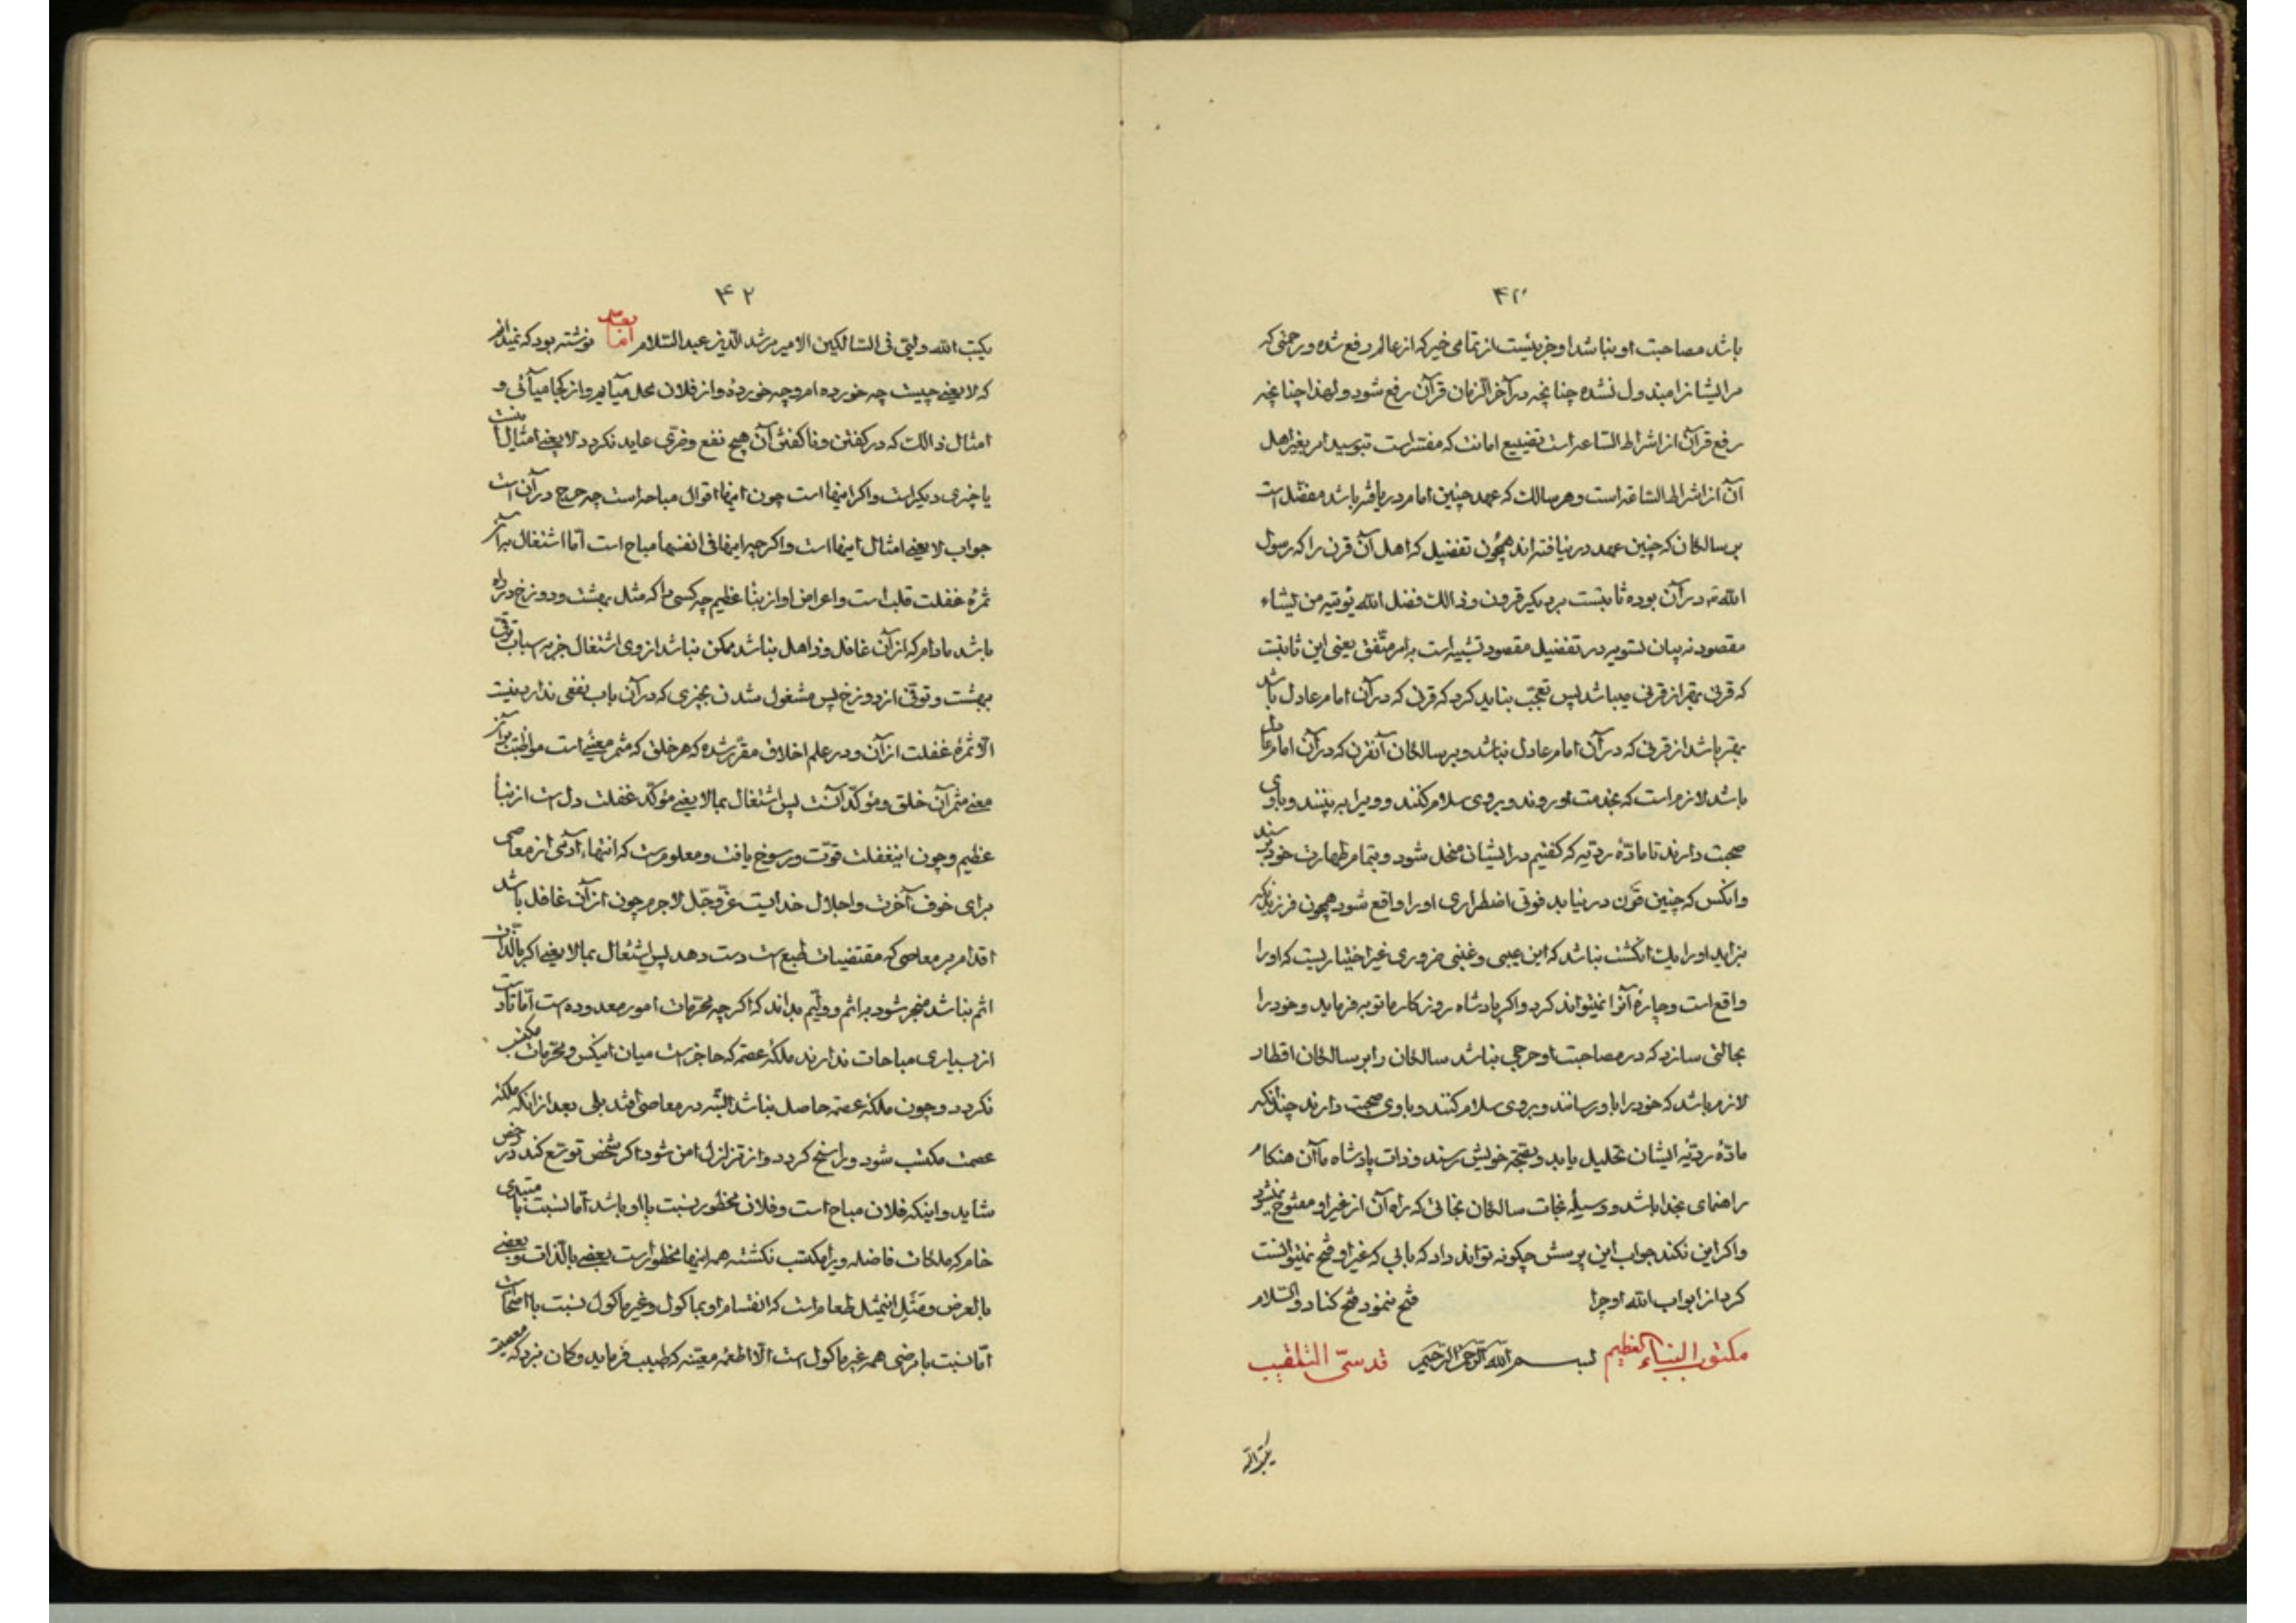 ۴۱
باشد مصاحبت او نباشد او جزئیست از تمامی خیر که از عالم رفع شده و رحمتی که
مر ایشانرا مبذول نشده چنانچه در آخر الزمان قرآن رفع شود ولهذا چنانچه
رفع قرآن از اشراط الساعه است تضییع امانت که مفسر است بتوسید امر بغیر اهل
آن از اشراط الساعة است و هر سالک که عهد چنین امام دریافته باشد مفضل است
بر سالکان که چنین عهد در نیافته اند همچون تفضیل که اهل آن قرن را که رسول
الله در آن بوده ثابتست بر دیگر قرون وذالک فضل الله یؤتیه من یشاء
مقصود نه بیان تسویه در تفضیل مقصود تشبیه است بامر متفق یعنی این ثابتست
که قرنی بهتر از قرنی میباشد پس تعجب نباید کرد که قرنی که در آن امام عادل باشد
بهتر باشد از قرنی که در آن امام عادل نباشد و بر سالکان آنقرن که در آن امام عادل
باشد لازم است که بخدمت او روند و بر وی سلام کنند و ویرا به بینند و با وی
صحبت دارند تا مادّهٔ ردیه که گفتیم در ایشان منحل شود و بتمام طهارت خود برسند
وانکس که چنین قرن در نیابد فوتی اضطراری او را واقع شود همچون فرزندیکه
بزاید او را یک انگشت نباشد که این عیبی و غبنی ضروری غیر اختیاریست که او را
واقع است و چارهٔ آنرا نمیتواند کرد و اگر پادشاه روزگار ما توبه فرماید و خود را
بحالتی سازد که در مصاحبت او حرجی نباشد سالکان را بر سالکان اقطار
لازم باشد که خود را باو رسانند و بر وی سلام کنند و با وی صحبت دارند چندانکه
مادّهٔ ردیّه ایشان تحلیل یابد و بهجة خویش رسند و ذات پادشاه ما آن هنگام
راهنمای بخدا باشد و وسیلهٔ نجات سالکان نجاتی که راه آن از غیر او مفتوح نمیشود
واگر این نکند جواب این پرسش چگونه تواند داد که بابی که غیر او فتح نمیتوانست
کرد از ابواب الله او چرا فتح ننمود فتح کناد والسّلام
مکتوب النباء العظیم بسم الله الرحمن الرحیم قدسیّ التلقیب
یکتب الله
۴۲
یکتب الله ولیتی فی السالکین الامیر مرشد الدّین عبد السّلام امّا بعد نوشته بود که نمیدانم
که لا یعنی چیست چه خورده ام و چه خوردهٔ و از فلان محل میآیم و از کجا میآئی و
امثال ذالک که در گفتن و ناگفتن آن هیچ نفع و ضرّی عاید نگردد لا یعنی امثال اینست
یا چیزی دیگر است و اگر اینها است چون اینها اقوال مباحه است چه حرج در آن است
جواب لا یعنی امثال اینها است و اگر چه اینها فی انفسها مباح است امّا اشتغال بر آن
ثمرهٔ غفلت قلب است و اعراض او از نبأ عظیم چه کسی را که مثل بهشت و دوزخ در راه
باشد مادام که از آن غافل و ذاهل نباشد ممکن نباشد از وی اشتغال جز به اسباب ترقی
بهشت و توقّی از دوزخ پس مشغول شدن بچیزی که در آن باب نفعی ندارد نیست
الّا ثمرهٔ غفلت از آن و در علم اخلاق مقرّر شده که هر خلق که مثمر معنئ است مواظبت بر آن
معنی مثمر آن خلق و مؤکّد آنست پس اشتغال بما لا یعنی مؤکّد غفلت دل است از نبأ
عظیم و چون این غفلت قوّت و رسوخ یافت و معلوم است که انتهاء آدمی از معاصی
برای خوف آخرت و اجلال خدایست عزّ و جلّ لا جرم چون از آن غافل باشد
اقدام بر معاصی که مقتضیات طبع است دست دهد پس اشتغال بما لا یعنی اگر بالذّات
اثم نباشد منجر شود به اثم و ولیّم بداند که اگر چه محرّمات امور معدوده است امّا تا دست
از بسیاری مباحات ندارند ملکهٔ عصمة که حاجز است میان اینکس و محرّمات مکتسب
نگردد و چون ملکهٔ عصمة حاصل نباشد البتّه در معاصی افتد بلی بعد از انکه ملکهٔ
عصمت مکتسب شود و راسخ گردد و از تزلزل امن شود اگر شخص توسّع کند در رخص
شاید و اینکه فلان مباح است و فلان محظور نسبت باو باشد امّا نسبت با مبتدی
خام که ملکات فاضله ویرا مکتسب نگشته همه اینها محظور است بعضی بالذات و بعضی
بالعرض و مثل اینمثل طعام است که انقسام او بماکول و غیر ماکول نسبت با اصحّا است
امّا نسبت با مرضی همه غیر ماکول است الّا اطعمهٔ معیّنه که طبیب فرماید و گمان نبرد که معصیة